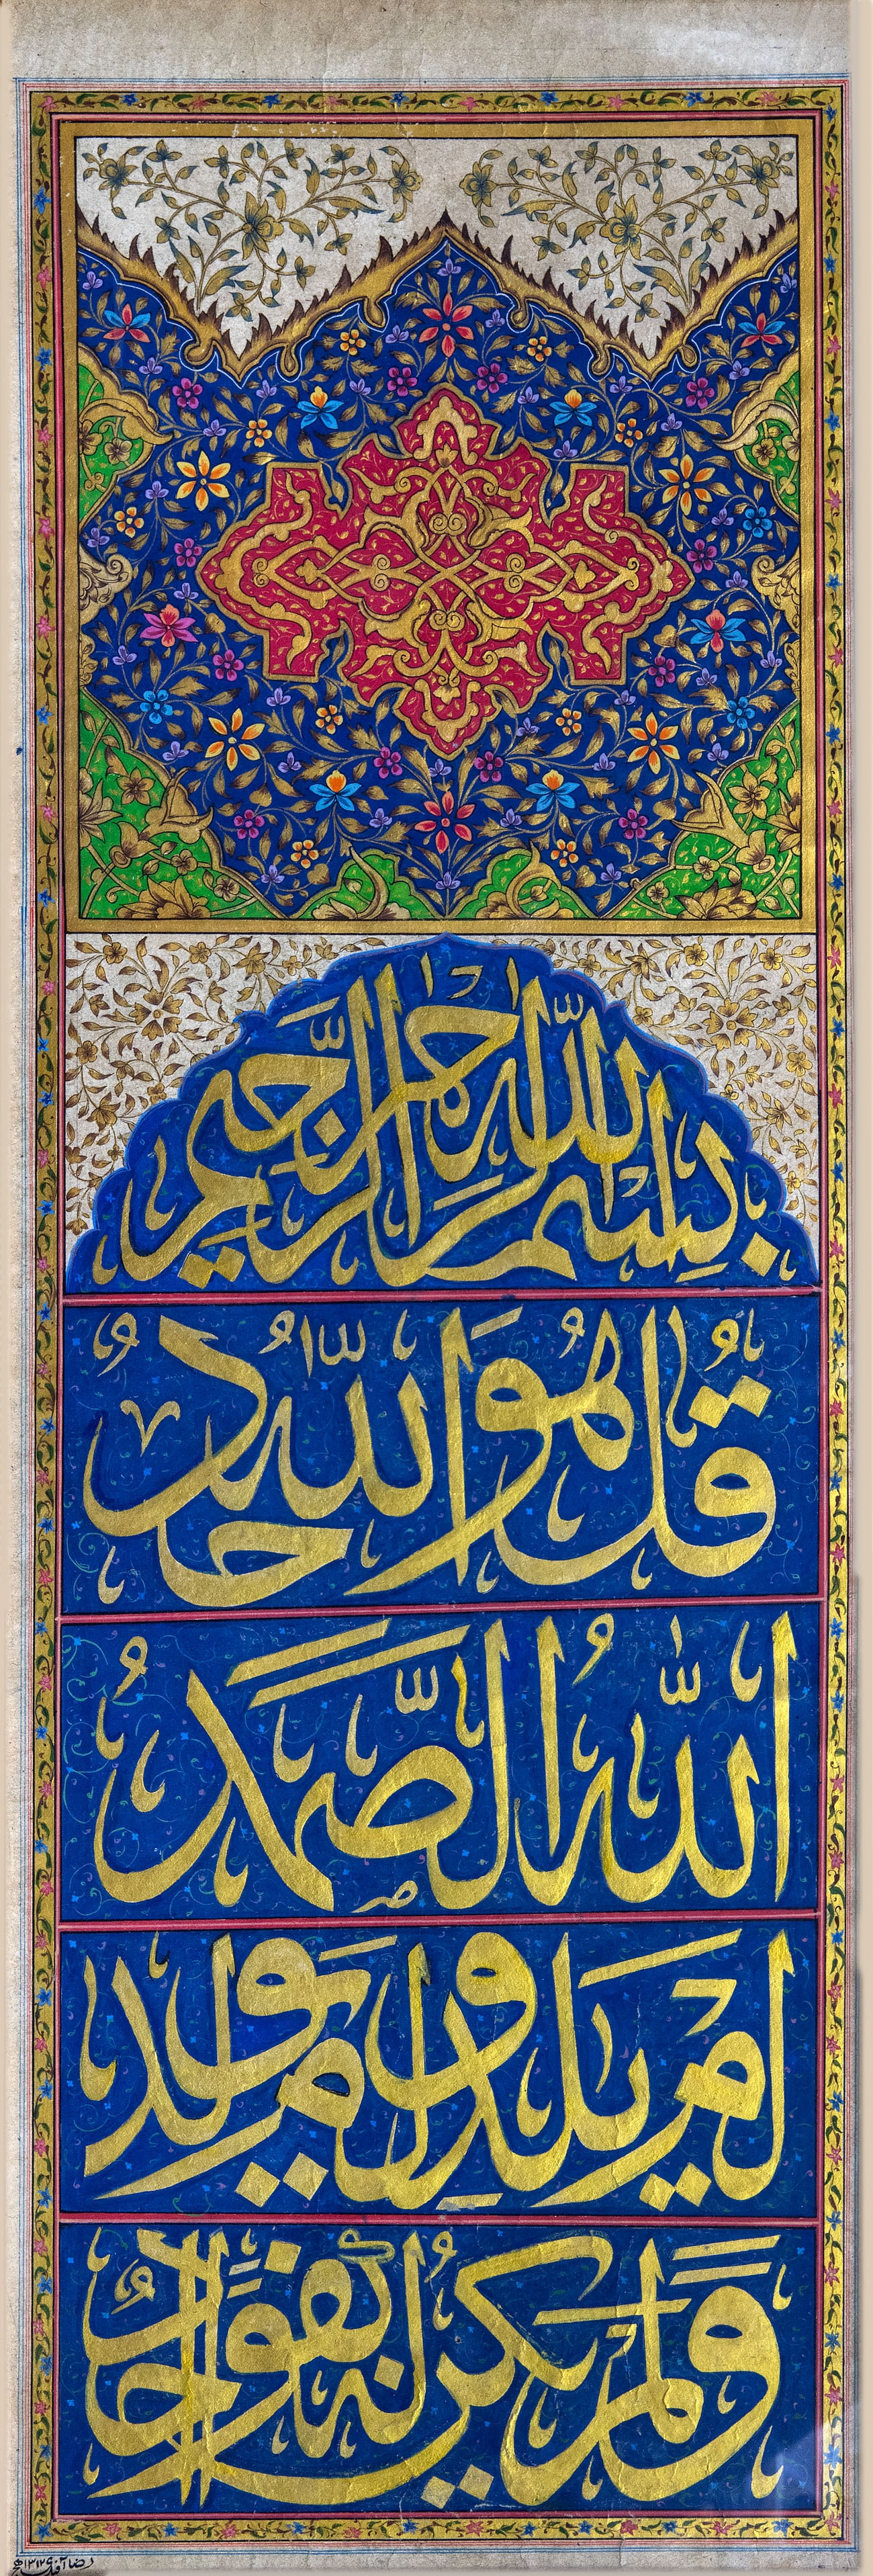 بِسْمِ اللّٰهِ الرَّحْمٰنِ الرَّحِيْمِ
قُلْ هُوَ اللّٰهُ اَحَدٌ
اَللّٰهُ الصَّمَدُ
لَمْ يَلِدْ وَلَمْ يُولَدْ
وَلَمْ يَكُنْ لَهُ كُفُوًا اَحَدٌ
رضا آفندی